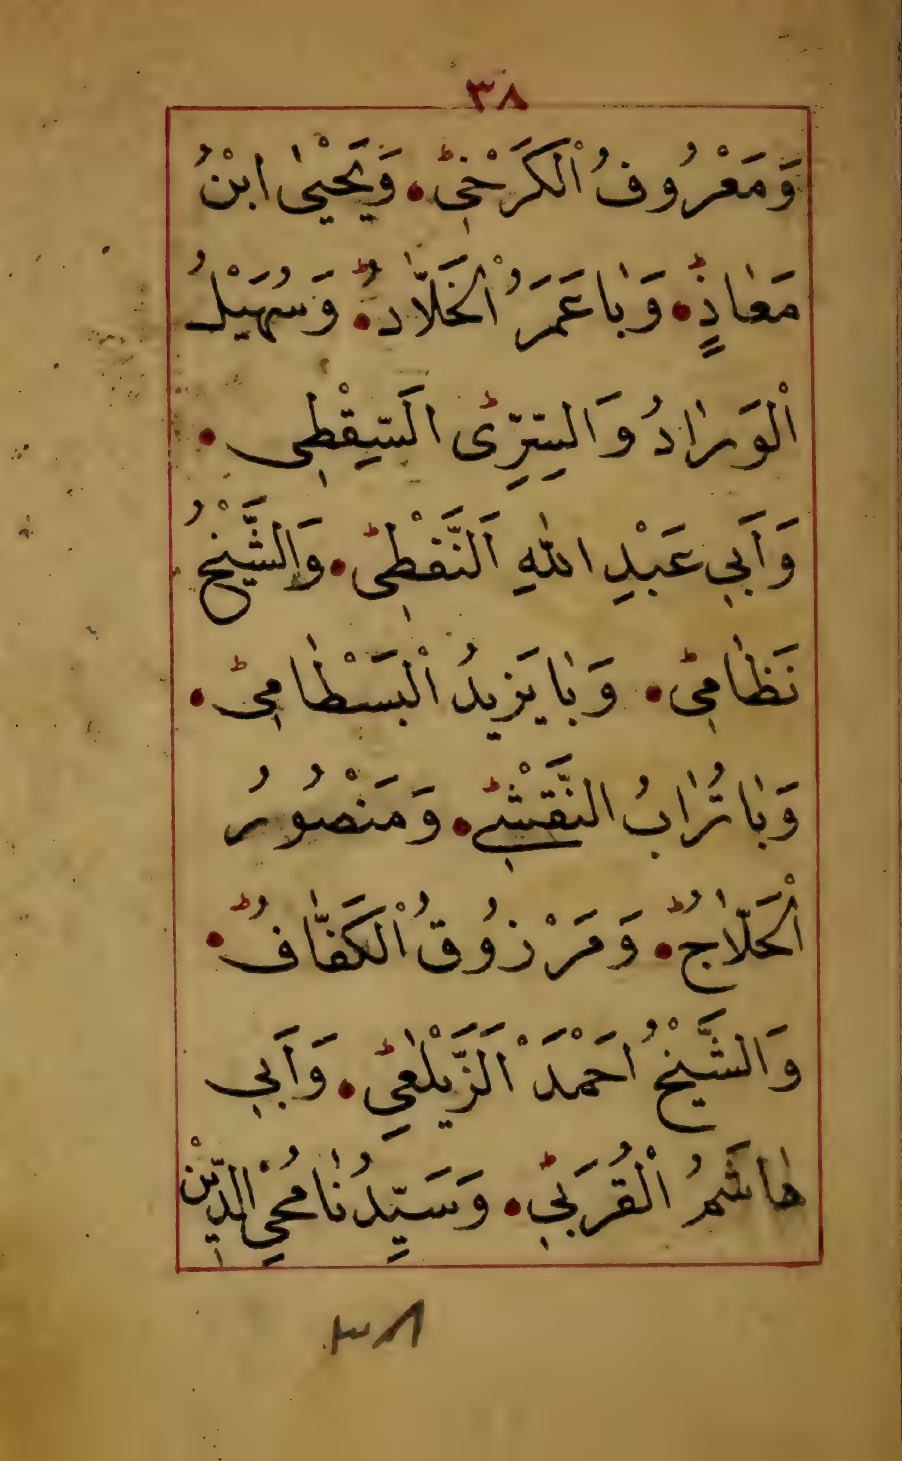 ٣٨
وَمَعْرُوفُ الْكَرَخْيِّ. وَيَحْيٰى ابْنُ
مَعَاذٍ. وَبَاعَمَرَ الْخَلَّادُ. وَسُهَيْلُ
الْوَرَادُ وَالسِّرِّى السِّقْطِى.
وَاَبِي عَبْدِ اللهِ النَّفْطِى. وَالشَّيْخُ
نَظَامِى. وَبَايَزِيدُ الْبَسْطَامِى.
وَبَاتُرَابُ النَّقْشَبِے. وَمَنْصُورُ
الْحَلَّاجُ. وَمَرْزُوقُ الْكَفَّافُ.
وَالشَّيْخُ اَحْمَدْ الزَّيْلَعِي. وَاَبِي
هَاشَمُ الْقُرَبِى. وَسَيِّدُنَا مُحْيِ الدِّيْنِ
٣٨